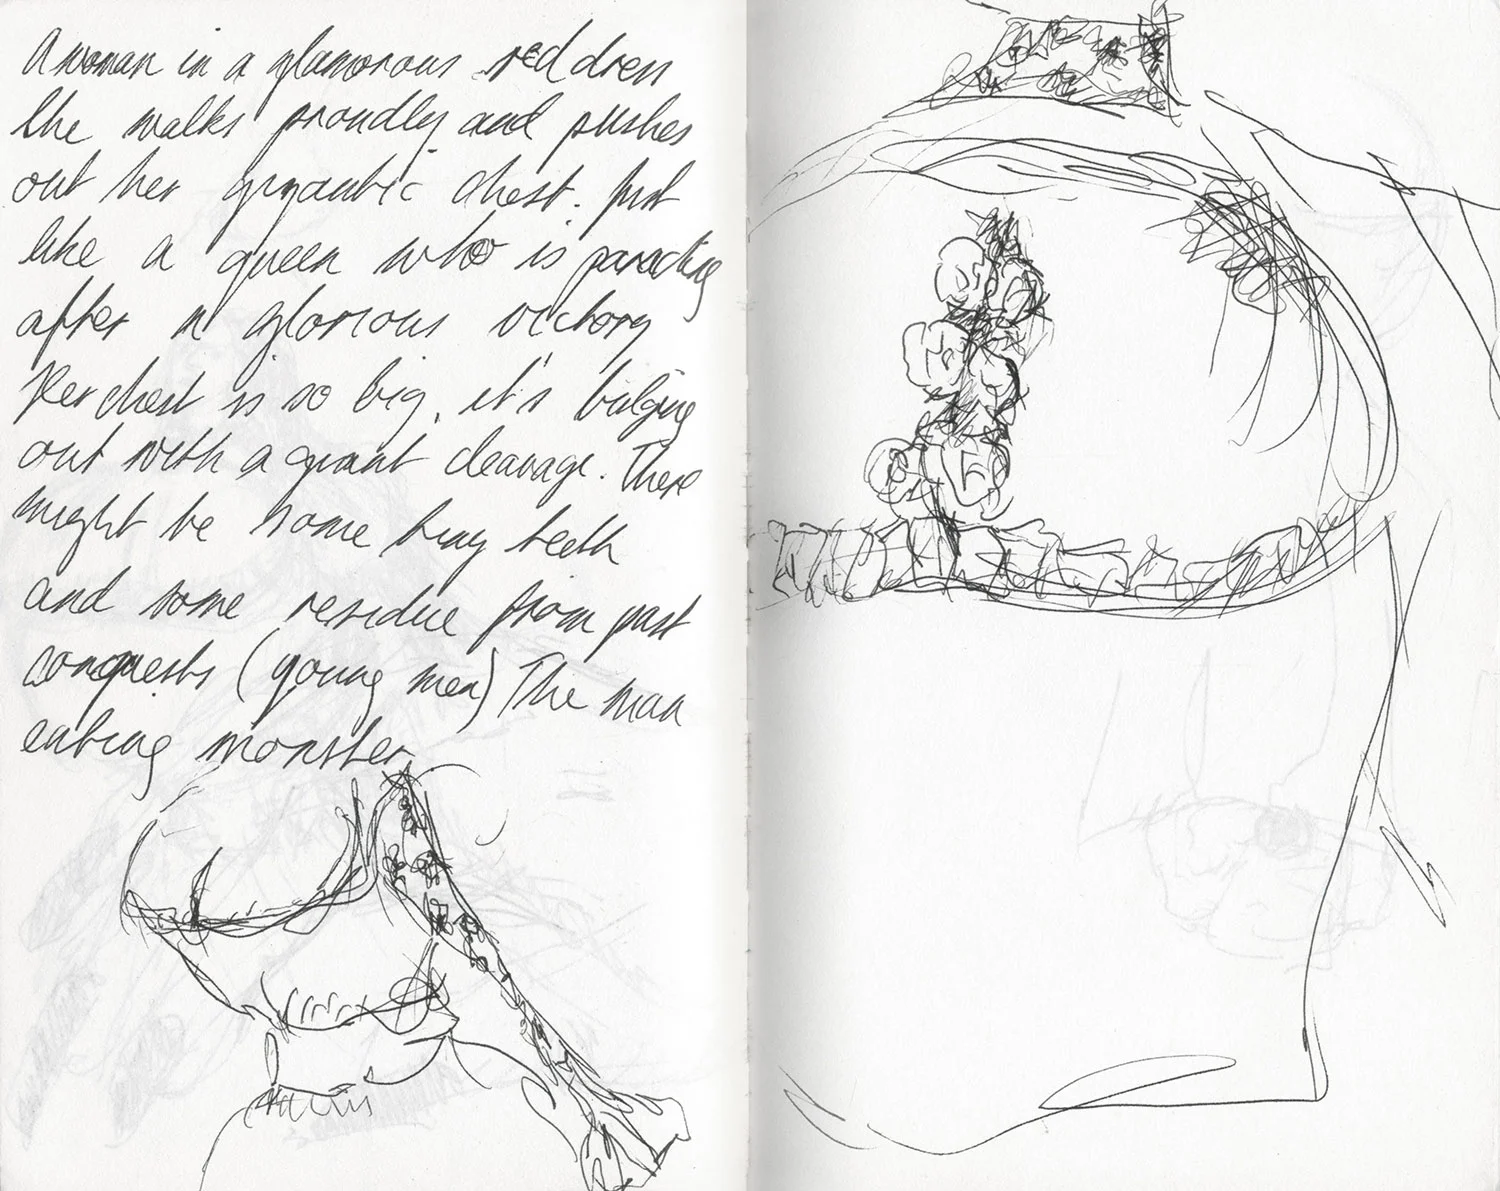 A woman in a glamorous red dress
She walks proudly and pushes
out her gigantic chest. Just
like a queen who is parading
after a glorious victory
Her chest is so big, it's bulging
out with a giant cleavage. There
might be some tiny teeth
and some residue from past
conquests (young men) The man
eating monster